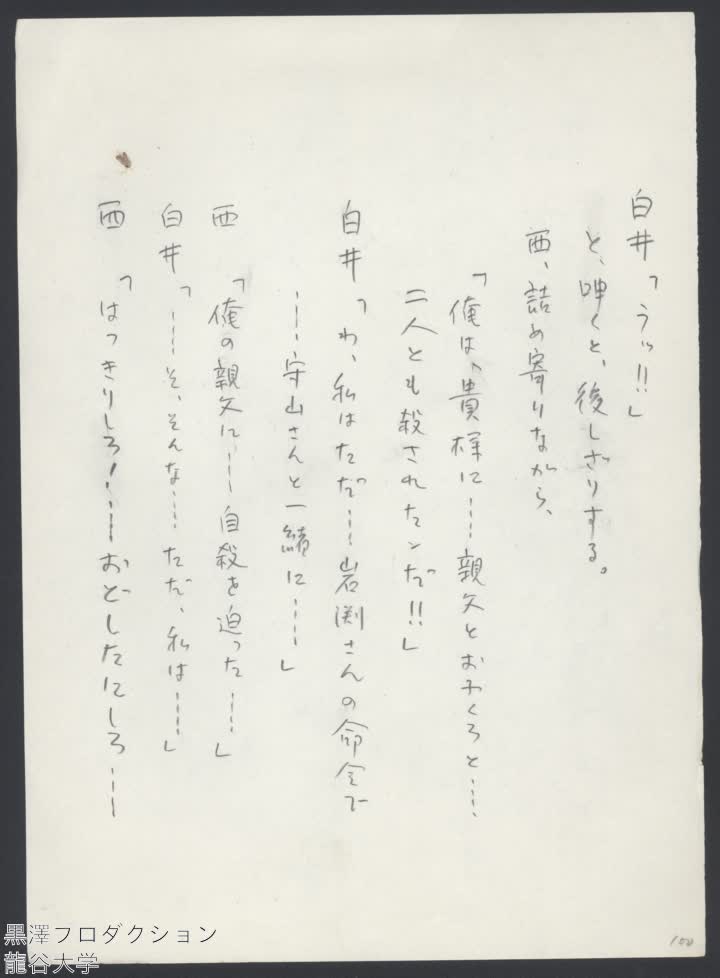 白井「うッ!!」
と、呻くと、後しざりする。
西、詰め寄りながら、
「俺は、貴様に……親父とおふくろと……
二人とも殺されたンだ!!」
白井「わ、私はただ……岩渕さんの命令で
……守山さんと一緒に……」
西「俺の親父に……自殺を迫った……」
白井「……そ、そんな……ただ、私は……」
西「はっきりしろ!……おどしたにしろ……
100
黒澤プロダクション
龍谷大学